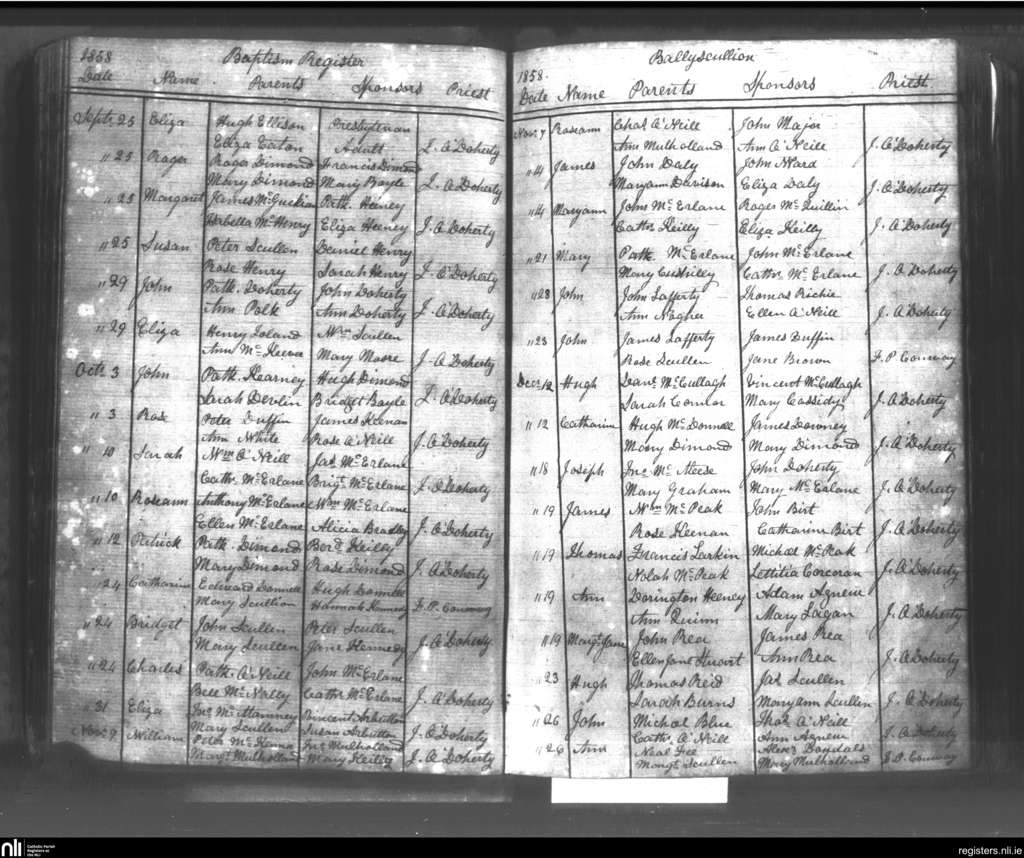 1858
Baptism Register
Date Name Parents Sponsors Priest
Septr 25 Eliza Hugh Ellison Presbyterian
Eliza Eaton Adult L. O'Doherty
" 25 Roger Roger Dimond Francis Dimond
Mary Dimond Mary Boyle L. O'Doherty
" 25 Margaret James McGuckian Patk. Heiney
Isabella McHenry Eliza Heeney J. O'Doherty
" 25 Susan Peter Scullen Daniel Henry
Rose Henry Sarah Henry J. O'Doherty
" 29 John Patk. Doherty John Doherty
Ann Polk Ann Doherty J. O'Doherty
" 29 Eliza Henry Toland Wm Scullen
Ann McKeever Mary Moore J. O'Doherty
Octr 3 John Patk. Kearney Hugh Dimond
Sarah Devlin Bridget Boyle L. O'Doherty
" 3 Rose Peter Duffin James Keenan
Ann White Rose O'Neill J. O'Doherty
" 10 Sarah Wm O'Neill Jas McErlane
Cathr. McErlane Brigt. McErlane J. O'Doherty
" 10 Roseann Anthony McErlane Wm McErlane
Ellen McErlane Alicia Bradley J. O'Doherty
" 12 Patrick Patk. Dimond Berd. Keilly
Mary Dimond Rose Dimond J. O'Doherty
" 24 Catharine Edward Donnell Hugh Donnell
Mary Scullion Hannah Kennedy F. P. Conway
" 24 Bridget John Scullen Peter Scullen
Mary Scullen Jane Kennedy J. O'Doherty
" 24 Charles Patk. O'Neill John McErlane
Bell McNally Cathr McErlane J. O'Doherty
" 31 Eliza Jno. Vincent
Mary Scullen Susan J. O'Doherty
Novr 7 William Peter McKenna Jno Mulholland
Margt. Mulholland Mary Keilly J. O'Doherty
Ballyscullion
1858.
Date Name Parents Sponsors Priest
Novr 7 Roseann Chas O'Neill John Major
Ann Mulholland Ann O'Neill J. O'Doherty
" 14 James John Daly John Ward
Maryann Davison Eliza Daly J. O'Doherty
" 14 Maryann John McErlane Roger McQuillin
Cathr Keilly Eliza Keilly J. O'Doherty
" 21 Mary Patk. McErlane John McErlane
Mary Cuskilley Cathr. McErlane J. O'Doherty
" 28 John John Lafferty Thomas Richie
Ann Ellen O'Neill J. O'Doherty
" 23 John James Lafferty James Duffin
Rose Scullen Jane Brown F. P. Conway
Decr 12 Hugh McCullagh Vincent McCullagh
Sarah Connor Mary Cassidy J. O'Doherty
" 12 Catharine Hugh McDonnell James Downey
Mary Dimond Mary Dimond J. O'Doherty
" 18 Joseph Jno. McAleese John Doherty
Mary Graham Mary McErlane J. O'Doherty
" 19 James Wm McPeak John Birt
Rose Keenan Catharine Birt J. O'Doherty
" 19 Thomas Francis Larkin Michael McPeak
Nolah McPeak Lettitia Corcoran J. O'Doherty
" 19 Ann Dorington Heeney Adam Agnew
Ann Quinn Mary Lagan J. O'Doherty
" 19 Margt. Jane John Rea James Rea
Ellen Jane Stuart Ann Rea J. O'Doherty
" 23 Hugh Thomas Reid Jas Scullen
Sarah Burns Maryann Scullen J. O'Doherty
" 26 John Michal Blue Thos O'Neill
Cathr. O'Neill Ann Agnew J. O'Doherty
" 26 Ann Neal Fee Alexr
Margt Scullen Mary Mulholland F. P. Conway
nli
Catholic Parish
Registers at
the NLI
registers.nli.ie